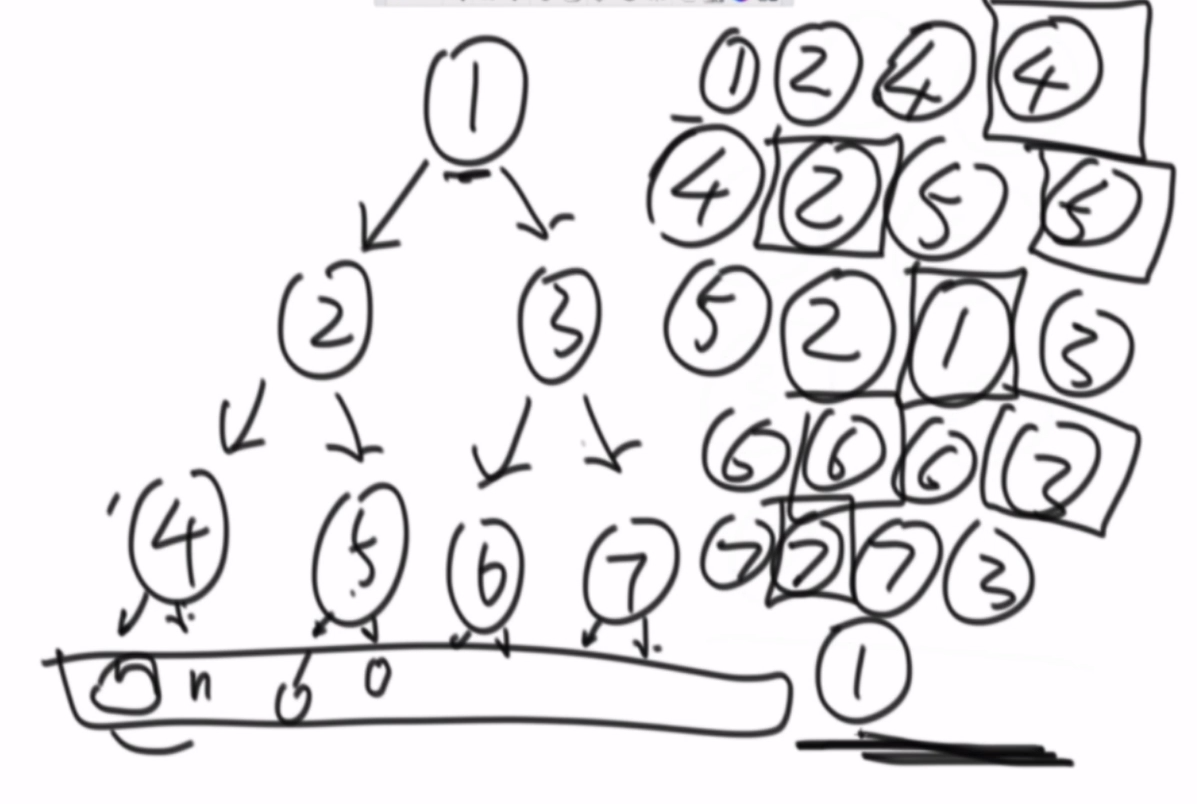 1
2 3
4 5 6 7
n 0 0
1 2 4 4
4 2 5 5
5 2 1 3
6 6 6 3
7 7 7 3
1